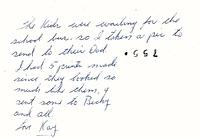 The Kids were waiting for the
school bus. so I taken a pic to
send to their Dad
I had 5 prints made
since they looked so
much like them, &
sent some to Becky
and all.
Love Kay